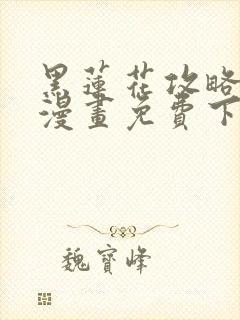 黑蓮花攻略
漫畫免費下
魏寶峰